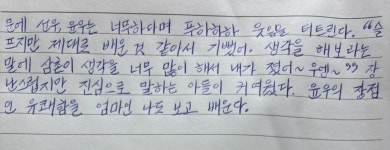 문에 선우, 윤우는 너무하다며 푸하하하 웃음을 터트린다. "슬
프지만 제대로 배운 것 같아서 기뻤어. 생각을 해보라는
말에 삼촌이 생각을 너무 많이 해서 내가 졌어~ 우엥~" 장
난스럽지만 진심으로 말하는 아들이 귀여웠다. 윤우의 장점
인 유쾌함을 엄마인 나도 보고 배운다.